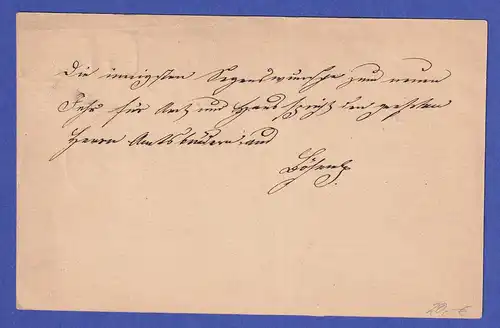 Die innigsten Segenswünsche zum neuen
Jahr für Amt und Haus den geehrten
Herrn Amtsbrüdern
20,- €